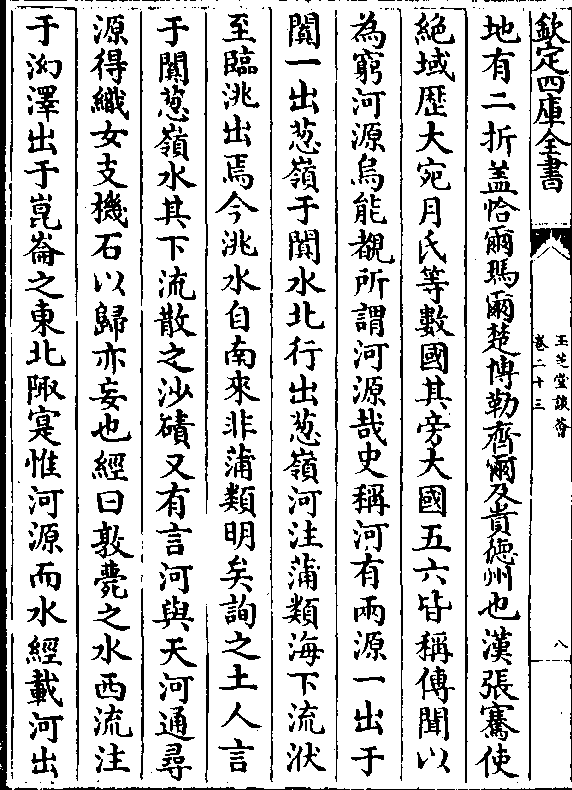 欽定四庫全書
玉芝堂談薈
卷二十三
八
地有二折盖恰爾瑪爾楚博勒齊爾及貴徳州也漢張騫使
絶域歴大宛月氏等數國其旁大國五六皆稱傳聞以
為窮河源烏能覩所謂河源哉史稱河有兩源一出于
闐一出葱嶺于闐水北行出葱嶺河注蒲類海下流洑
至臨洮出焉今洮水自南來非蒲類明矣詢之土人言
于闐葱嶺水其下流散之沙磧又有言河與天河通尋
源得織女支機石以歸亦妄也經曰敦薨之水西流注
于泑澤出于崑崙之東北陬寔惟河源而水經載河出